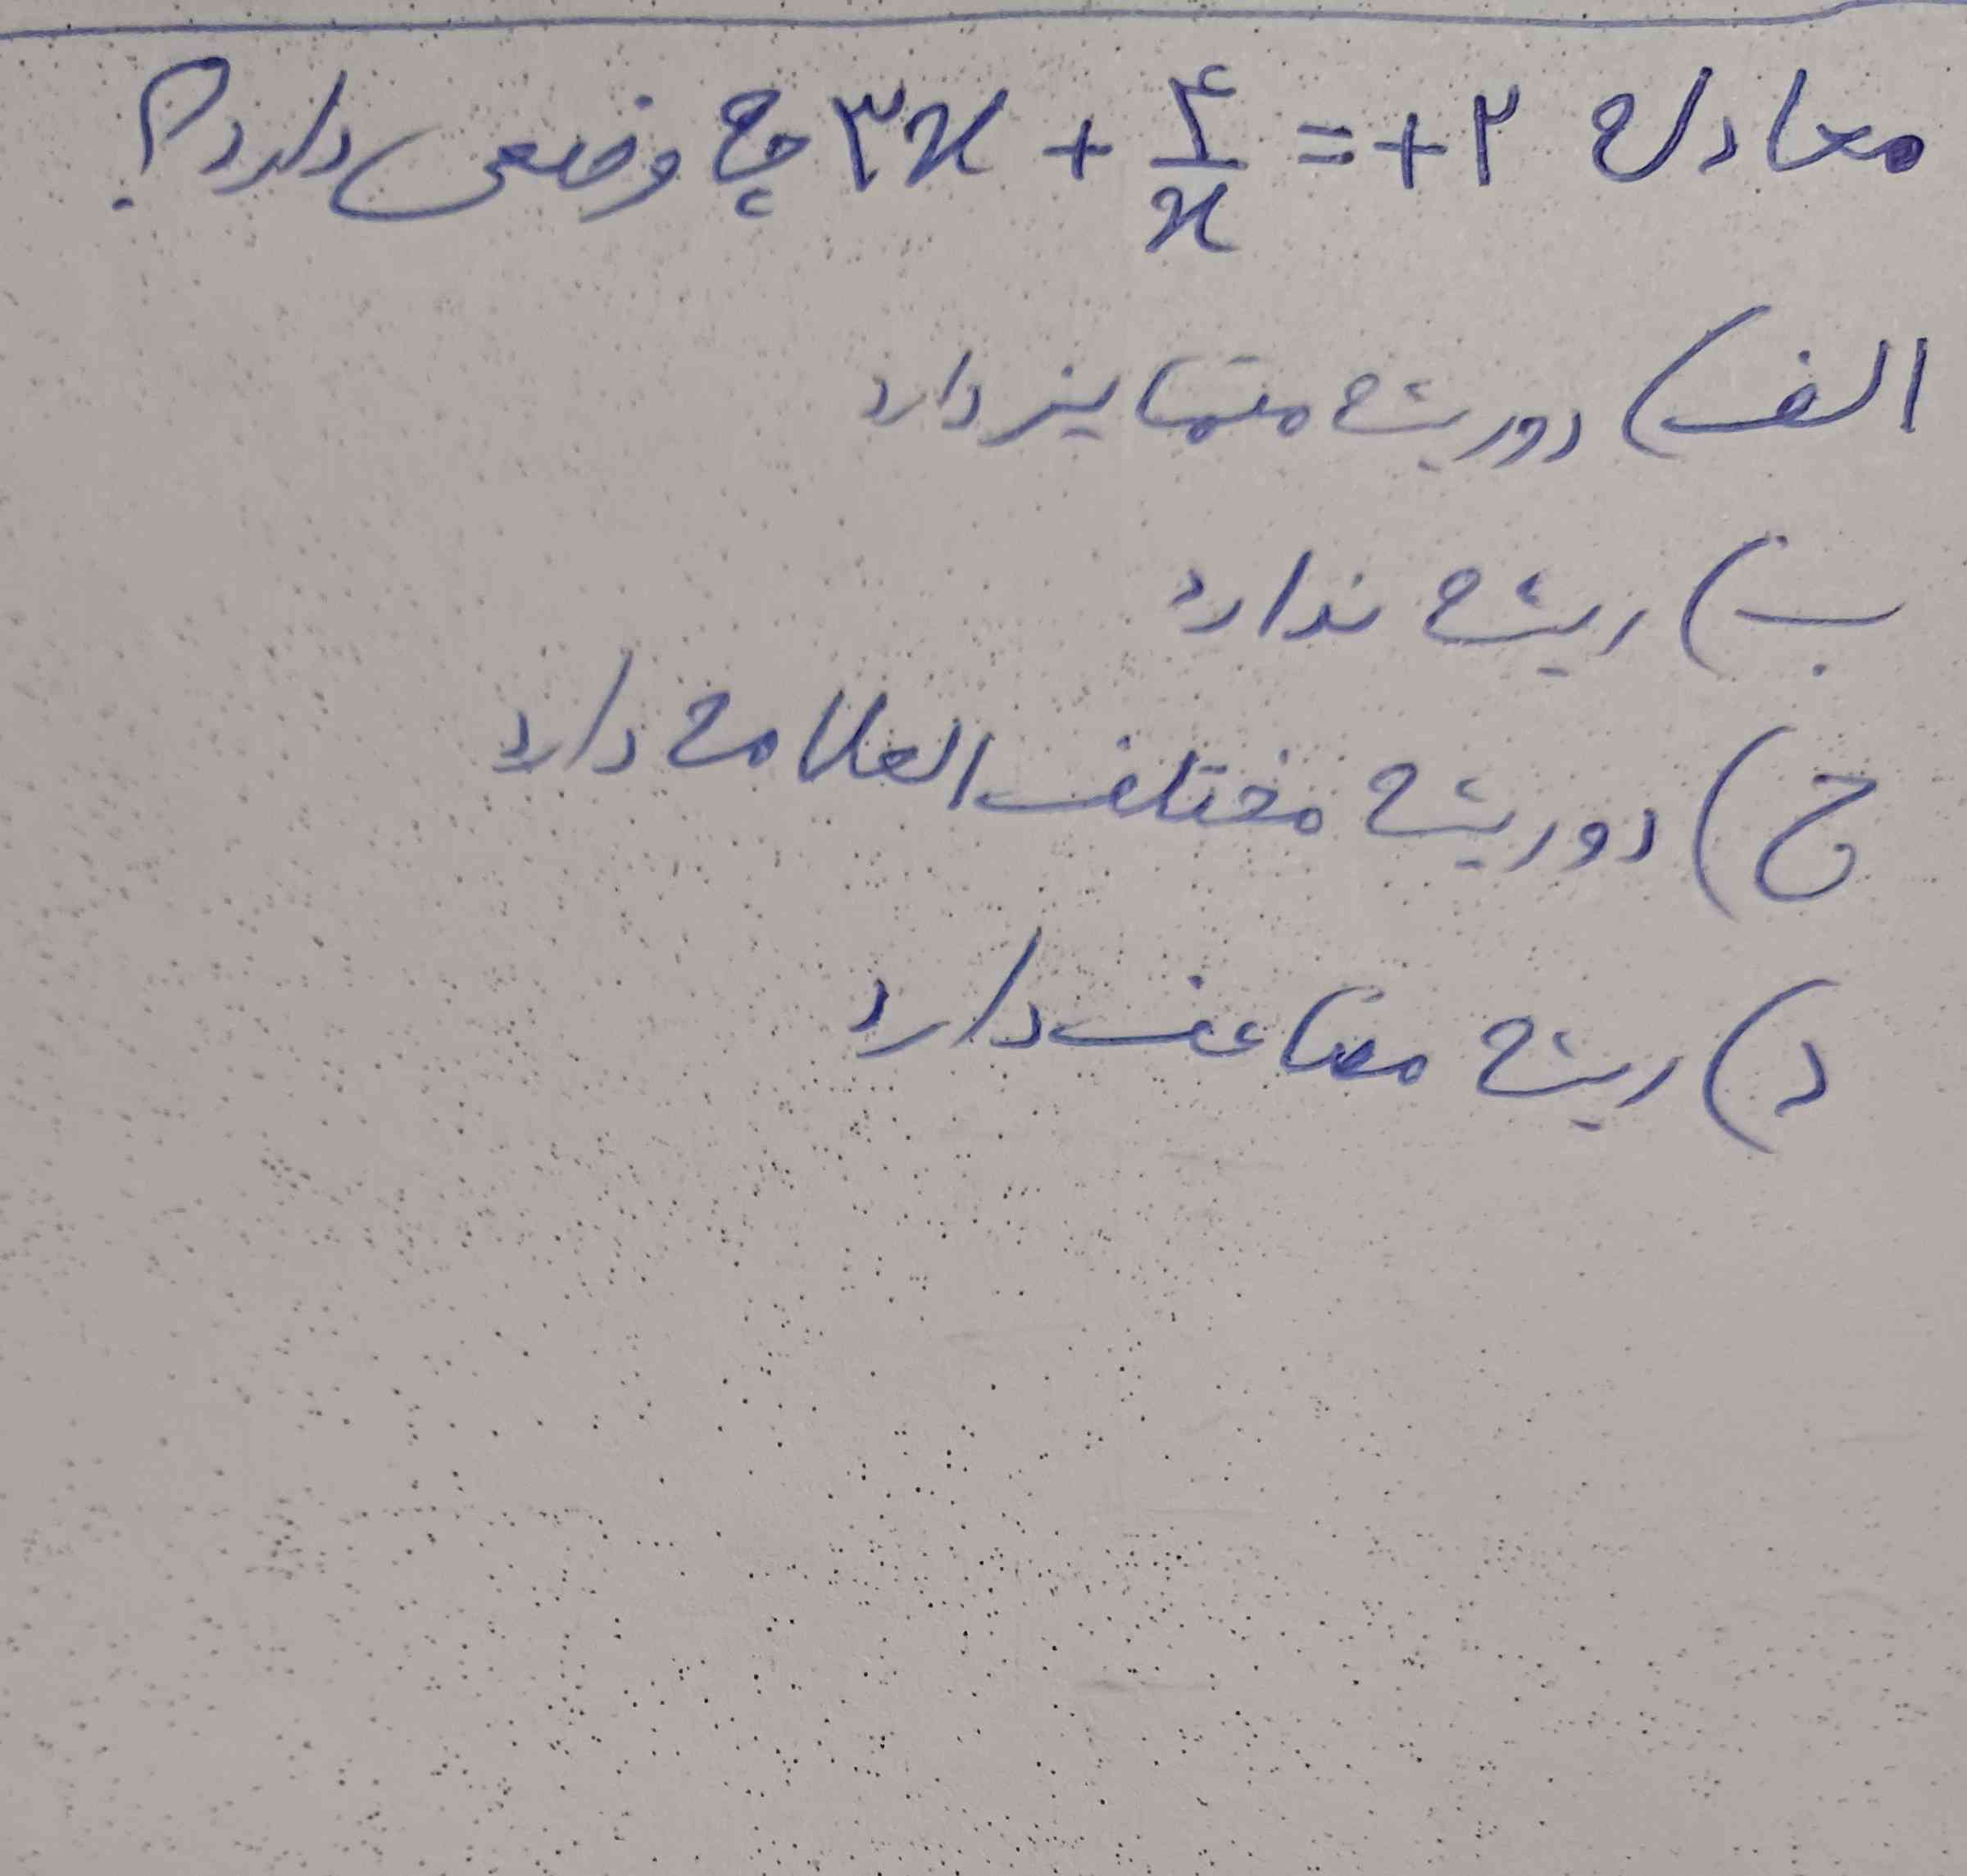 معادله ۳x + ۴/x = +۲ چه وضعی دارد؟
الف) دو ریشه متمایز دارد
ب) ریشه ندارد
ج) دو ریشه مختلف العلامه دارد
د) ریشه مضاعف دارد